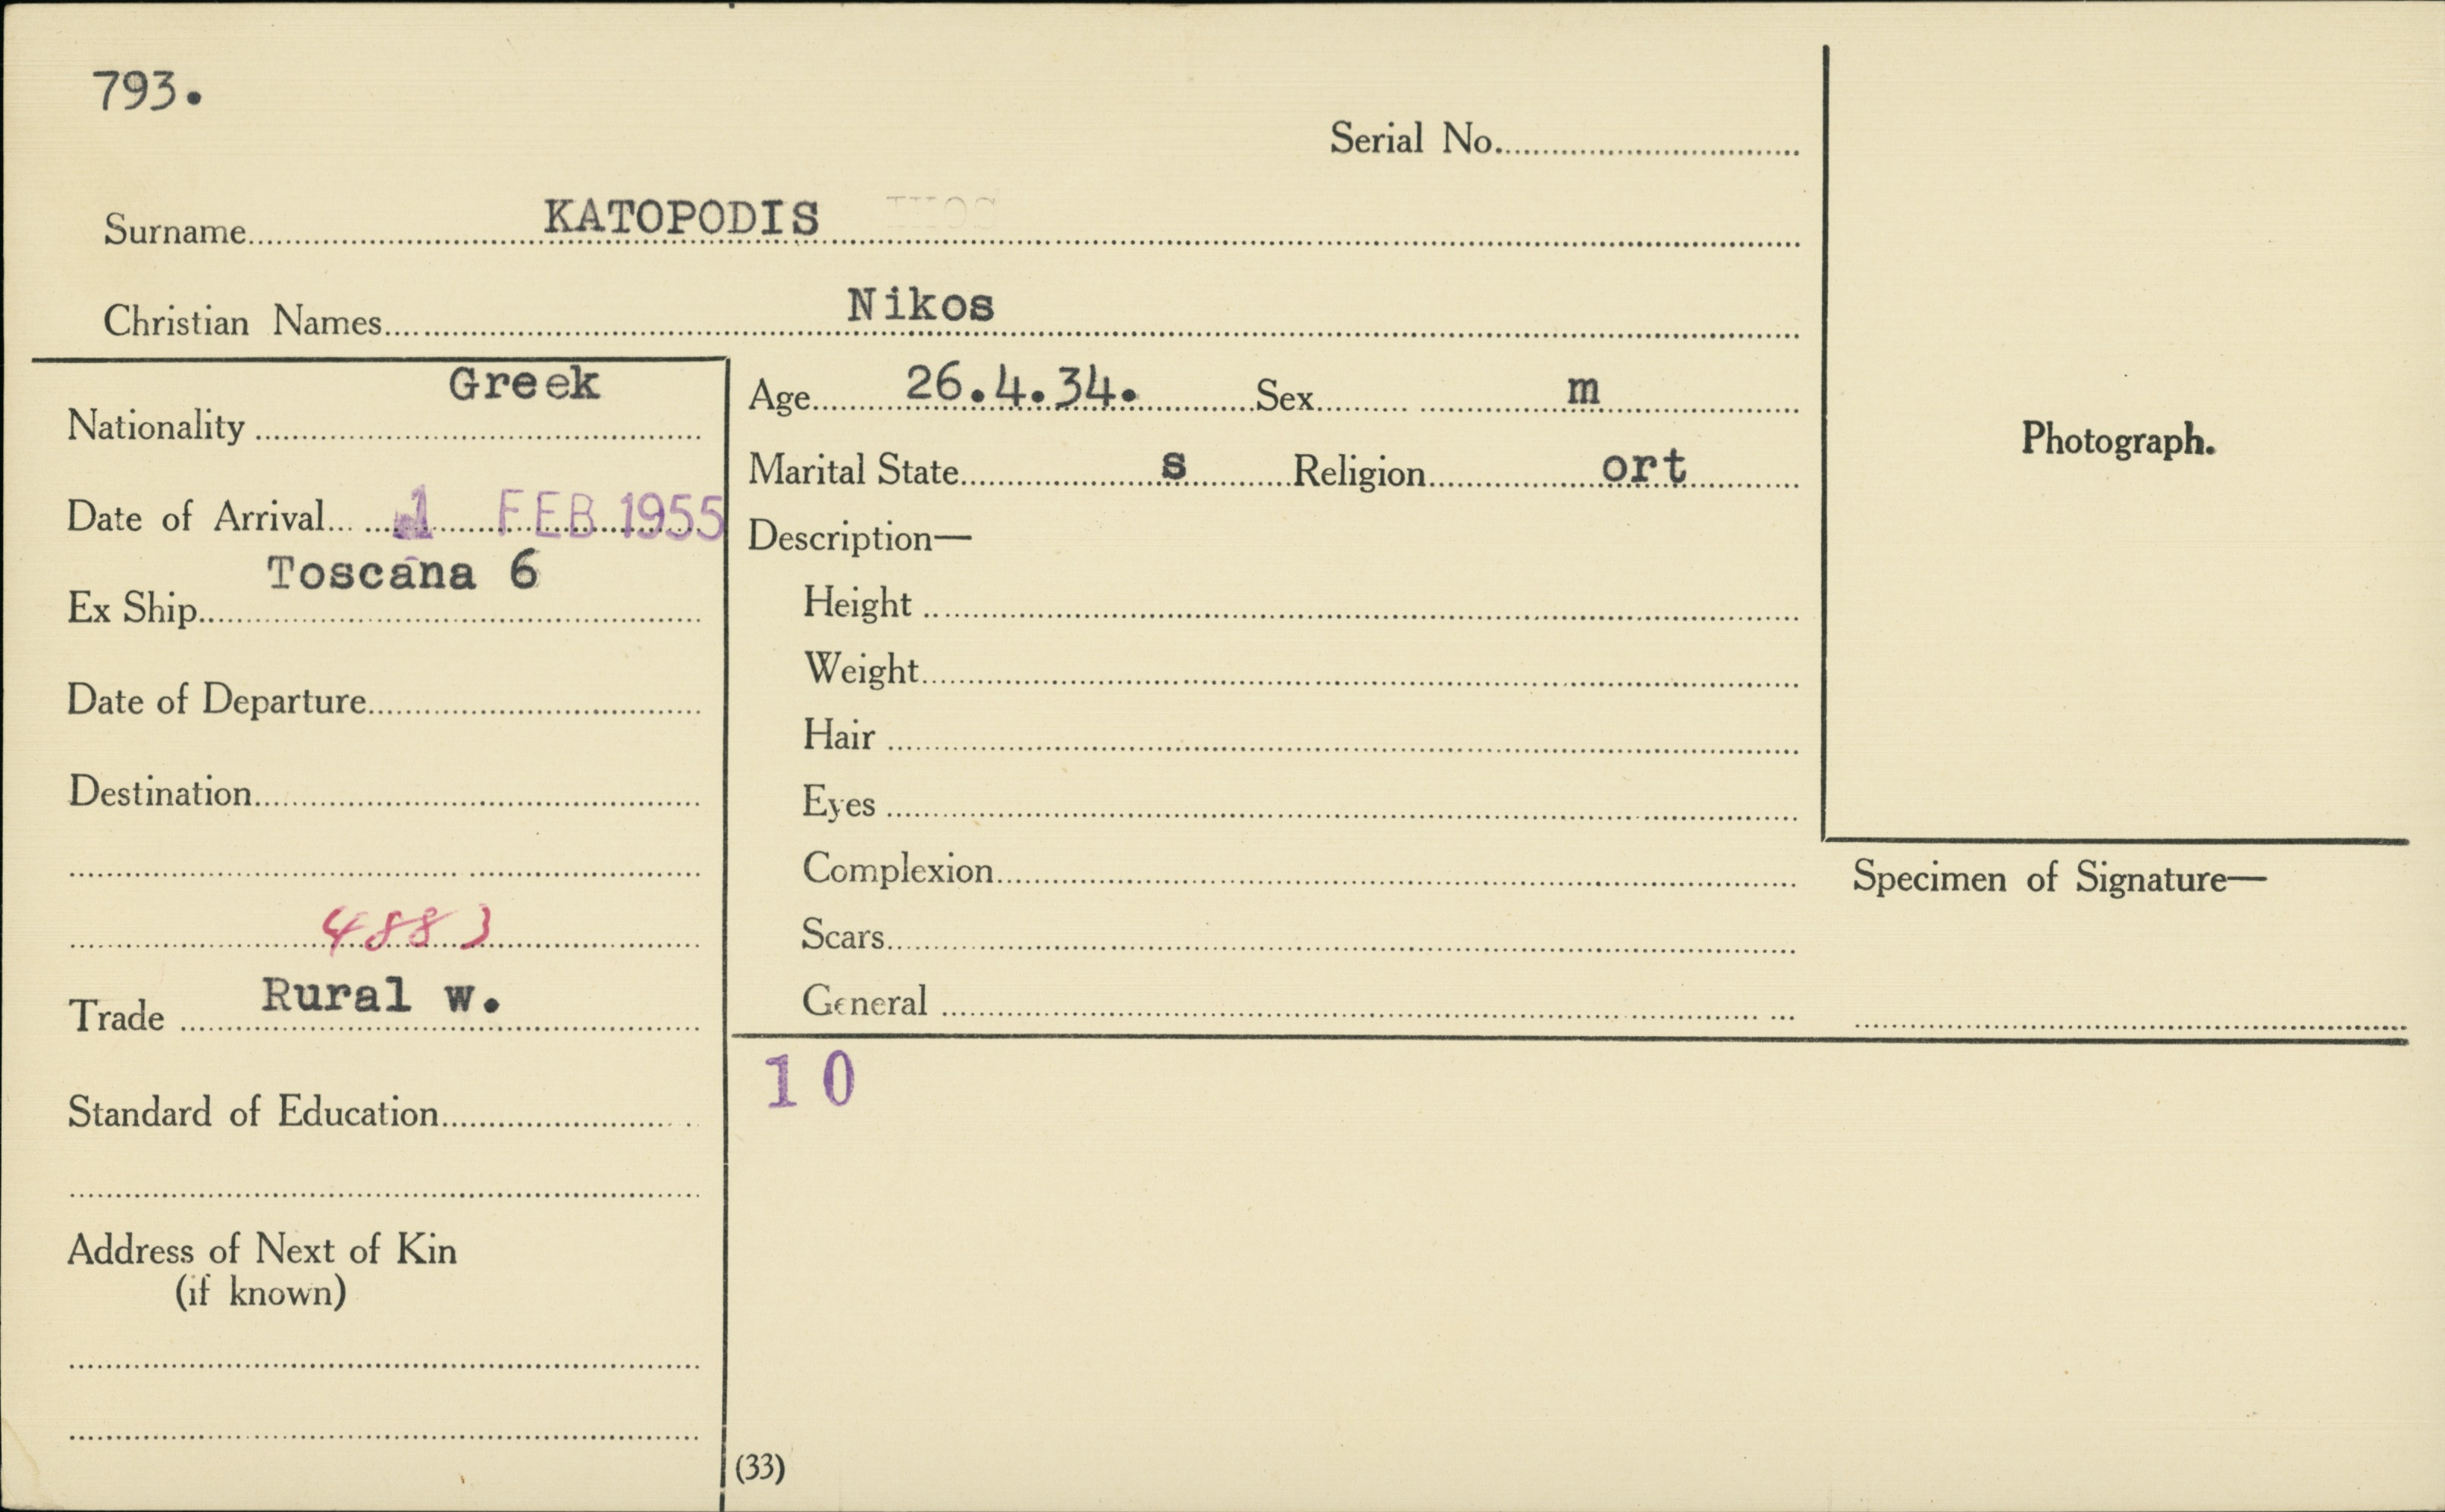 793.
Serial No.
Surname KATOPODIS
Christian Names Nikos
Nationality Greek
Date of Arrival 1 FEB 1955
Ex Ship Toscana 6
Date of Departure
Destination
4883
Trade Rural w.
Standard of Education
Address of Next of Kin
(if known)
Age 26.4.34. Sex m
Marital State s Religion ort
Description—
Height
Weight
Hair
Eyes
Complexion
Scars
General
10
(33)
Photograph.
Specimen of Signature—